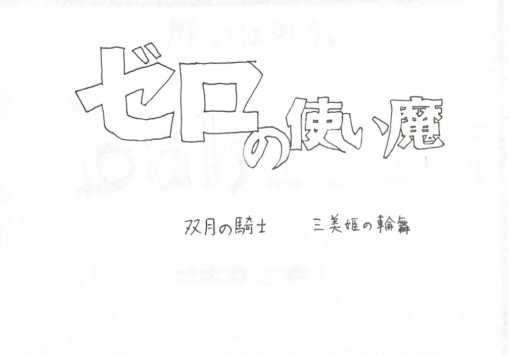 ゼロの使い魔
双月の騎士　三美姫の輪舞